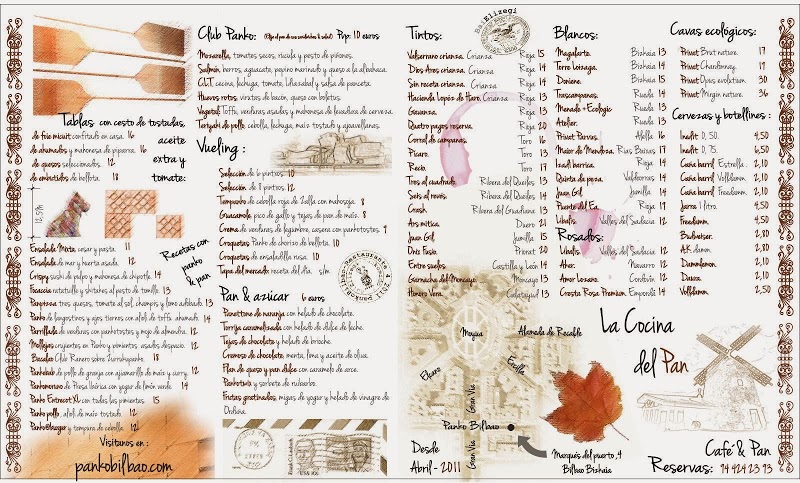 Tablas con cesto de tostadas,
aceite
extra y
tomate:
de foie micuit confitado en casa. 16
de ahumados y mahonesa de piparra. 16
de quesos seleccionados. 12
de embutidos de bellota. 18
Ensalada Mixta, cesar y pasta. 11
Ensalada de mar y huerta asada. 12
Crispy, sushi de pulpo y mahonesa de chipotle. 14
Focaccia ratatuille y shitakes al pesto de tomillo. 13
Pankpizza tres quesos, tomate al sol, champis y lomo adobado. 13
Panko de langostinos y ajos tiernos con alioli de toffe ahumado. 14
Parrillada de verduras con pankotostas y mojo de almendra. 12
Mollejas crujientes en Panko y pimientos asados despacio. 12
Bacalao Club Ranero sobre Zurrukupanko. 18
Pankebab de pollo de granja con ajoamarillo de maiz y curry. 12
Pankomeromo de Presa Ibérica con yogur de limón verde. 14
Panko Entrecot XL con todas las pimientas. 15
Panko pollo, alioli de maiz tostado. 12
Pankoburger y tempura de cebolla. 12
Recetas con
panko
& pan
Visitanos en :
pankobilbao.com
Club Panko: (Elige el pan de tus sandwiches & salud) Pvp: 10 euros
Mozarella, tomates secos, rúcula y pesto de piñones.
Salmón, berros, aguacate, pepino marinado y queso a la albahaca.
Club, cecina, lechuga, tomate, Idiazabal y salsa de panceta.
Huevos rotos, virutas de bacon, queso con boletus.
Vegetal Toffu, verduras asadas y mahonesa de levadura de cerveza.
Teriyaki de pollo, cebolla, lechuga, maiz tostado y ajoavellanas.
Vueling :
Selección de 6 pintxos. 10
Selección de 8 pintxos. 12
Tempurado de cebolla roja de Zalla con mahosoja. 8
Guacamole, pico de gallo y tejas de pan de maiz. 8
Crema de verduras de legumbre, casera con pankotostas. 9
Croquetas Panko de chorizo de bellota. 10
Croquetas de ensaladilla rusa. 10
Tapa del mercado receta del dia. s/m
Pan & azúcar 6 euros
Panettone de naranja con helado de chocolate.
Torrija caramelizada con helado de dulce de leche.
Tejas de chocolate y helado de brioche.
Cremoso de chocolate, menta, lima y aceite de oliva.
Flan de queso y pan dulce con caramelo de arce.
Pankotmix y sorbete de ruibarbo.
Frutas gratinadas, migas de yogur y helado de vinagre de
Ordizia.
Tintos:
Valserrano crianza. Crianza Rioja 15
Dios Ares crianza. Crianza Rioja 14
Sin receta crianza. Crianza Rioja 14
Hacienda Lopez de Haro. Crianza Rioja 13
Gavanza. Rioja 13
Quatro pagos reserva. Rioja 20
Corral de campanas. Toro 16
Picaro. Toro 13
Recio. Toro 17
Tres al cuadrado. Ribera del Queiles 13
Seis al reves. Ribera del Queiles 14
Crash. Ribera del Guadiana 13
Ars mitica. Duero 21
Juan Gil. Jumilla 15
Onix Fusio. Priorat 20
Entre suelos. Castilla y León 14
Garnacha del Moncayo. Moncayo 13
Honoro Vera. Calatayud 13
Blancos:
Magalarte. Bizkaia 13
Torre Loizaga. Bizkaia 14
Doniene. Bizkaia 15
Trascampanas. Rueda 14
Menade Ecologic Rueda 13
Atelier. Rueda 13
Privat Parvus. Alella 16
Maior de Mendoza. Rias Baixas 17
Izadi barrica. Rioja 14
Quinta da peza. Valdeorras 14
Juan Gil. Jumilla 14
Puerta del Ea. Rioja 17
Libalis. Valles del Sadacia 12
Rosados:
Libalis. Valles del Sadacia 12
Aker. Navarro 12
Amor Lozano. Cordovin 12
Crosta Rosa Premium. Empordà 14
Cavas ecológicos:
Privat Brut nature. 17
Privat Chardonnay. 19
Privat Opus evolutium. 30
Privat Mirgin nature. 36
Cervezas y botellines :
Inedit 0,50. 4,50
Inedit 0,75. 6,50
Caña barril Estrella. 2,10
Caña barril Volldamm. 2,10
Jarra 1 litro. 4,50
Freedamm. 4,50
Budweiser. 2,80
AK damm. 2,80
Dammlemon. 2,10
Daura. 2,10
Volldamm. 2,50
Moyua
Alameda de Recalde
Elcano
Ercilla
Gran Via
Panko Bilbao
Gran Via
Desde
Abril - 2011
Marqués del puerto, 4
Bilbao Bizkaia
La Cocina
del Pan
Café & Pan
Reservas: 94 424 23 93